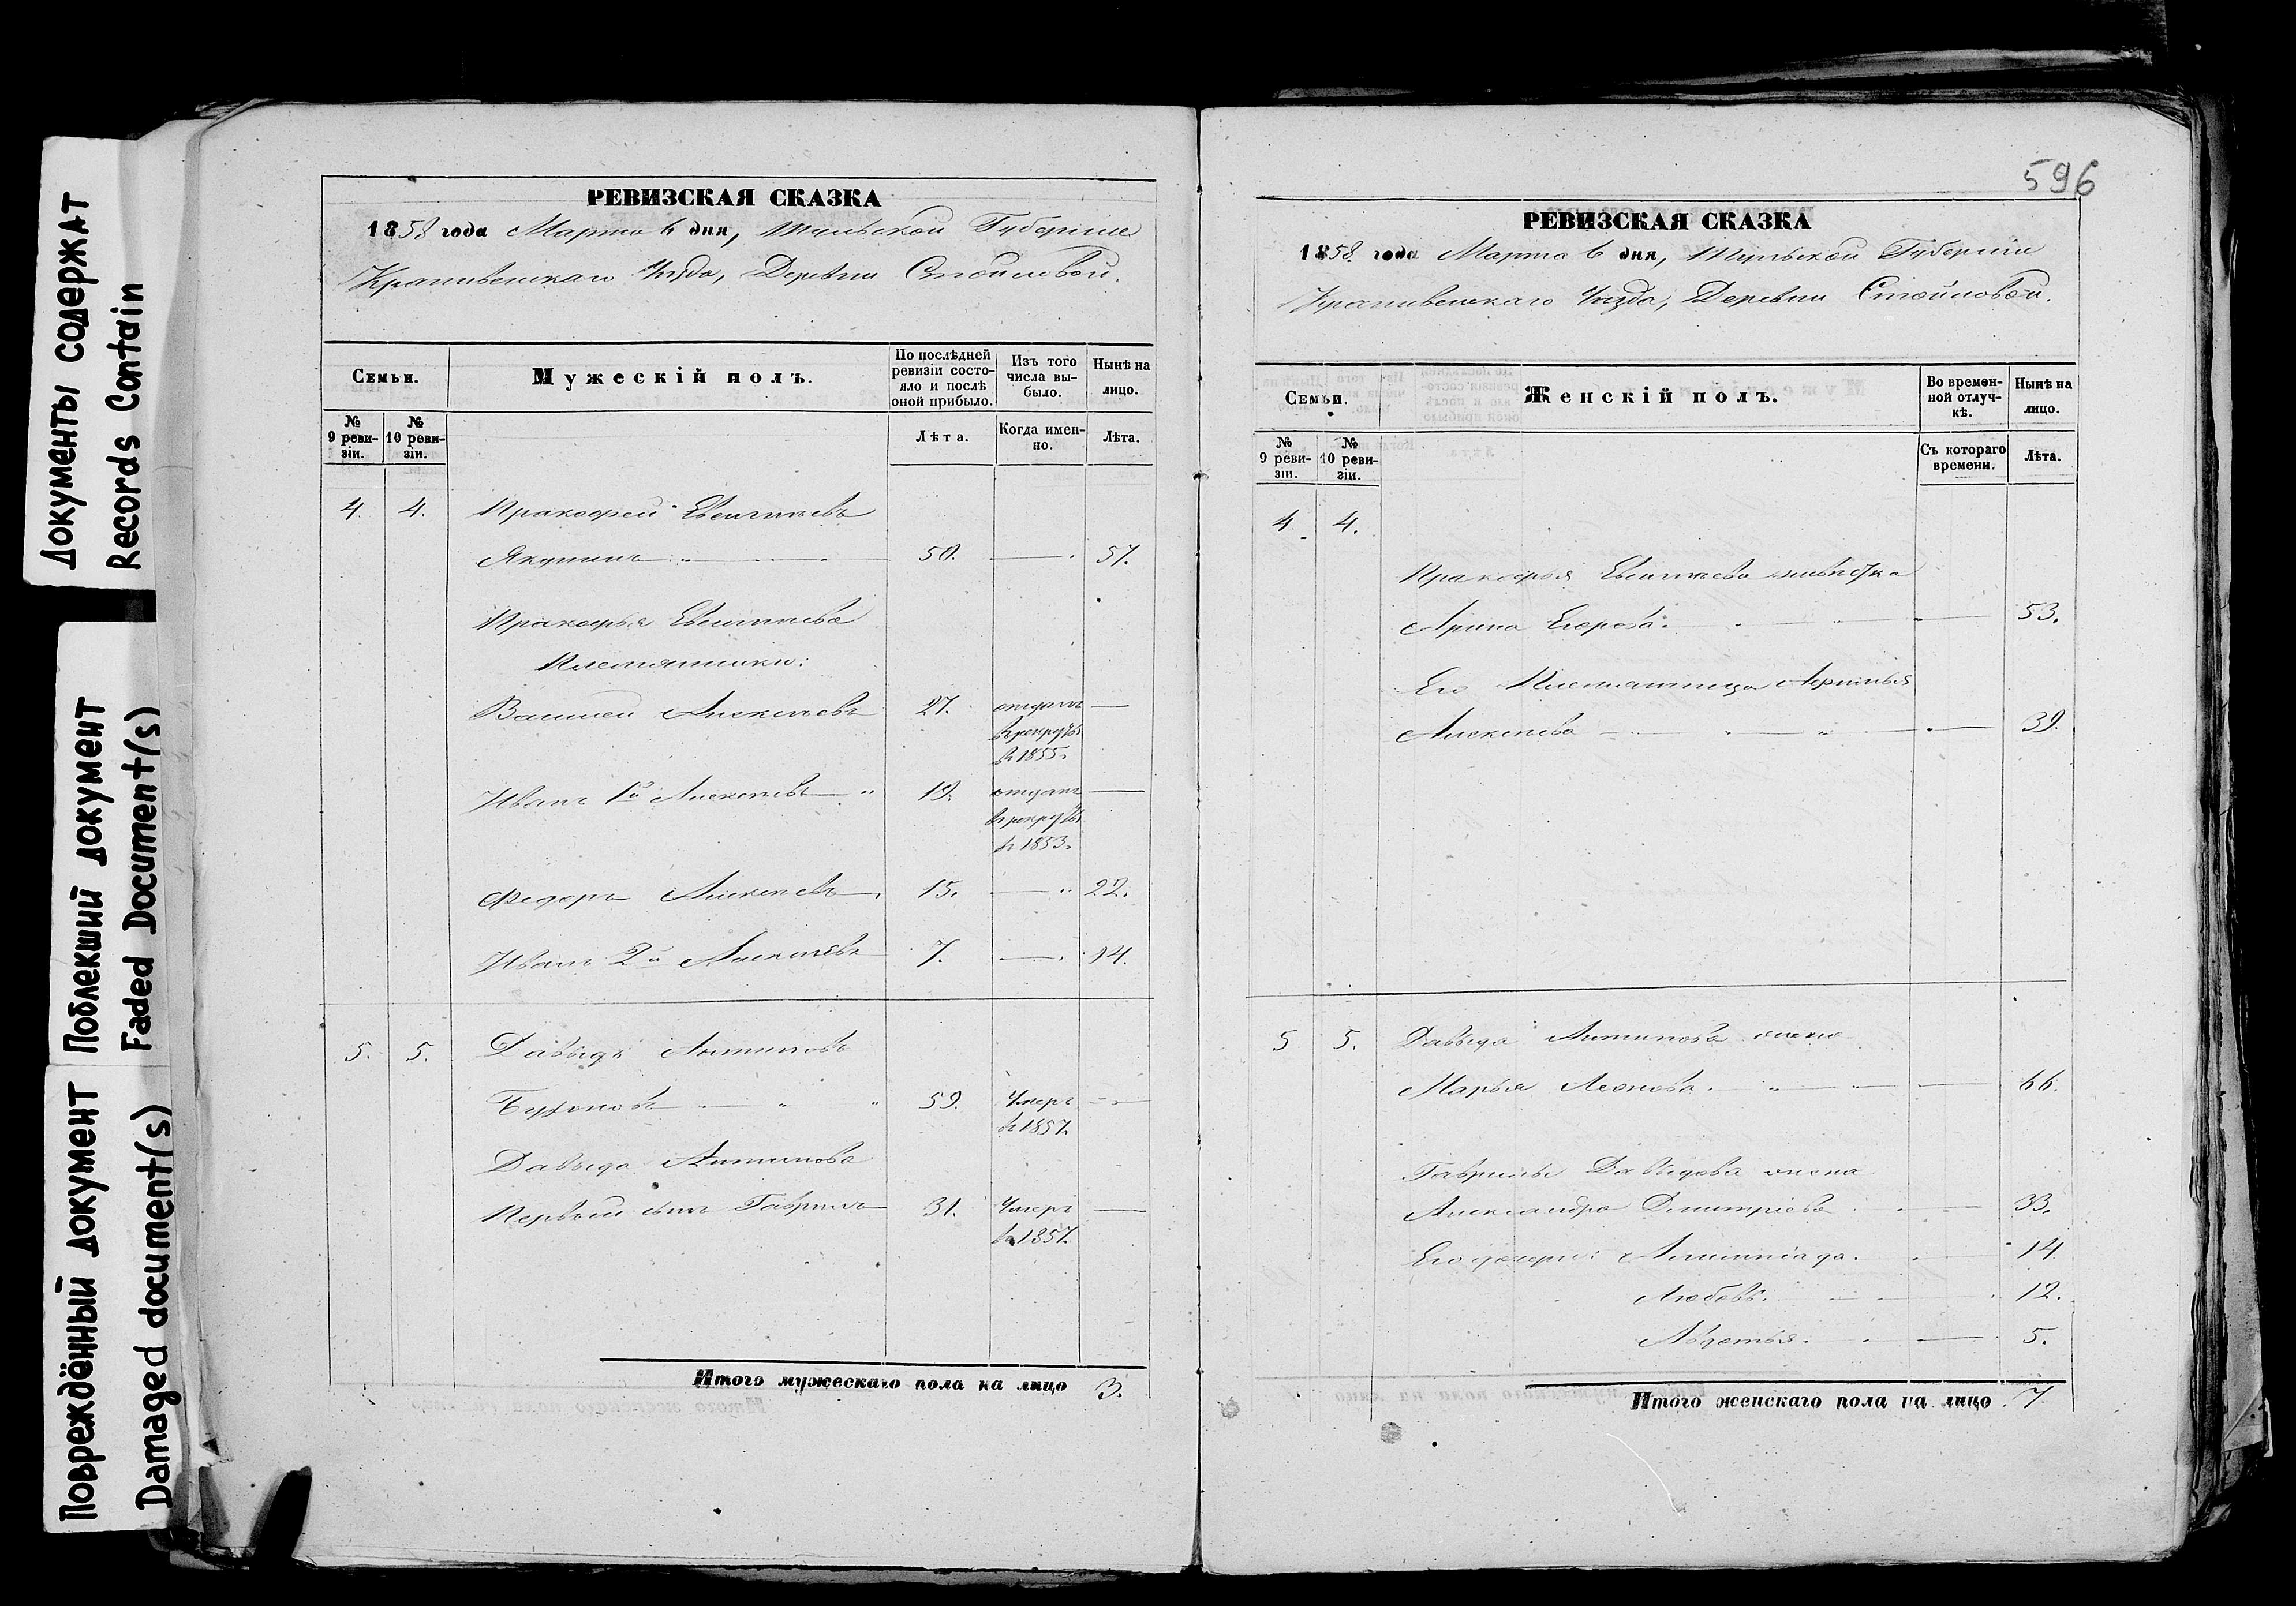 Документы содержат
Records Contain
Поблекший документ
Faded Document(s)
Повреждённый документ
Damaged document(s)
РЕВИЗСКАЯ СКАЗКА
1858 года Марта 6 дня, Тульской Губернии
Крапивенскаго Уезда, Деревни Стойловой.
Семьи.
Мужескій полъ.
По послѣдней ревизіи состо-
яло и послѣ оной прибыло.
Изъ того числа вы-
было.
Нынѣ на лицо.
№ 9 реви-
зіи.
№ 10 реви-
зіи.
Лѣта.
Когда имен-
но.
Лѣта.
4. 4. Пракофей Евсигнѣевъ
Якунинъ 50. 57.
Пракофья Евсигнѣева
Племянники:
Василей Алексѣевъ 27. отданъ
в рекруты
въ 1855.
Иванъ 1й Алексѣевъ 19. отданъ
в рекруты
въ 1853.
Федоръ Алексѣевъ 15. 22.
Иванъ 2й Алексѣевъ 7. 14.
5. 5. Давыдъ Антиповъ
59. Умеръ
въ 1857.
Давыда Антипова
Первый сынъ Гаврила 31. Умеръ
въ 1857.
Итого мужескаго пола на лицо 3.
596
РЕВИЗСКАЯ СКАЗКА
1858. года Марта 6 дня, Тульской Губерніи
Крапивенскаго Уезда, Деревни Стойловой.
Семьи.
Женскій полъ.
Во времен-
ной отлуч-
кѣ.
Нынѣ на лицо.
№ 9 реви-
зіи.
№ 10 реви-
зіи.
Съ котораго времени.
Лѣта.
4. 4.
Пракофья Евсигнѣева
Арина Егорова. 53.
Его Племянница
Алексѣева 39.
5 5. Давыда Антипова жена
Марья Леонова. 66.
Гаврилы Давыдова жена
Александра Дмитріева 33.
Его дочери: Алимпіада. 14.
Любовь. 12.
Авдотья. 5.
Итого женскаго пола на лицо 7